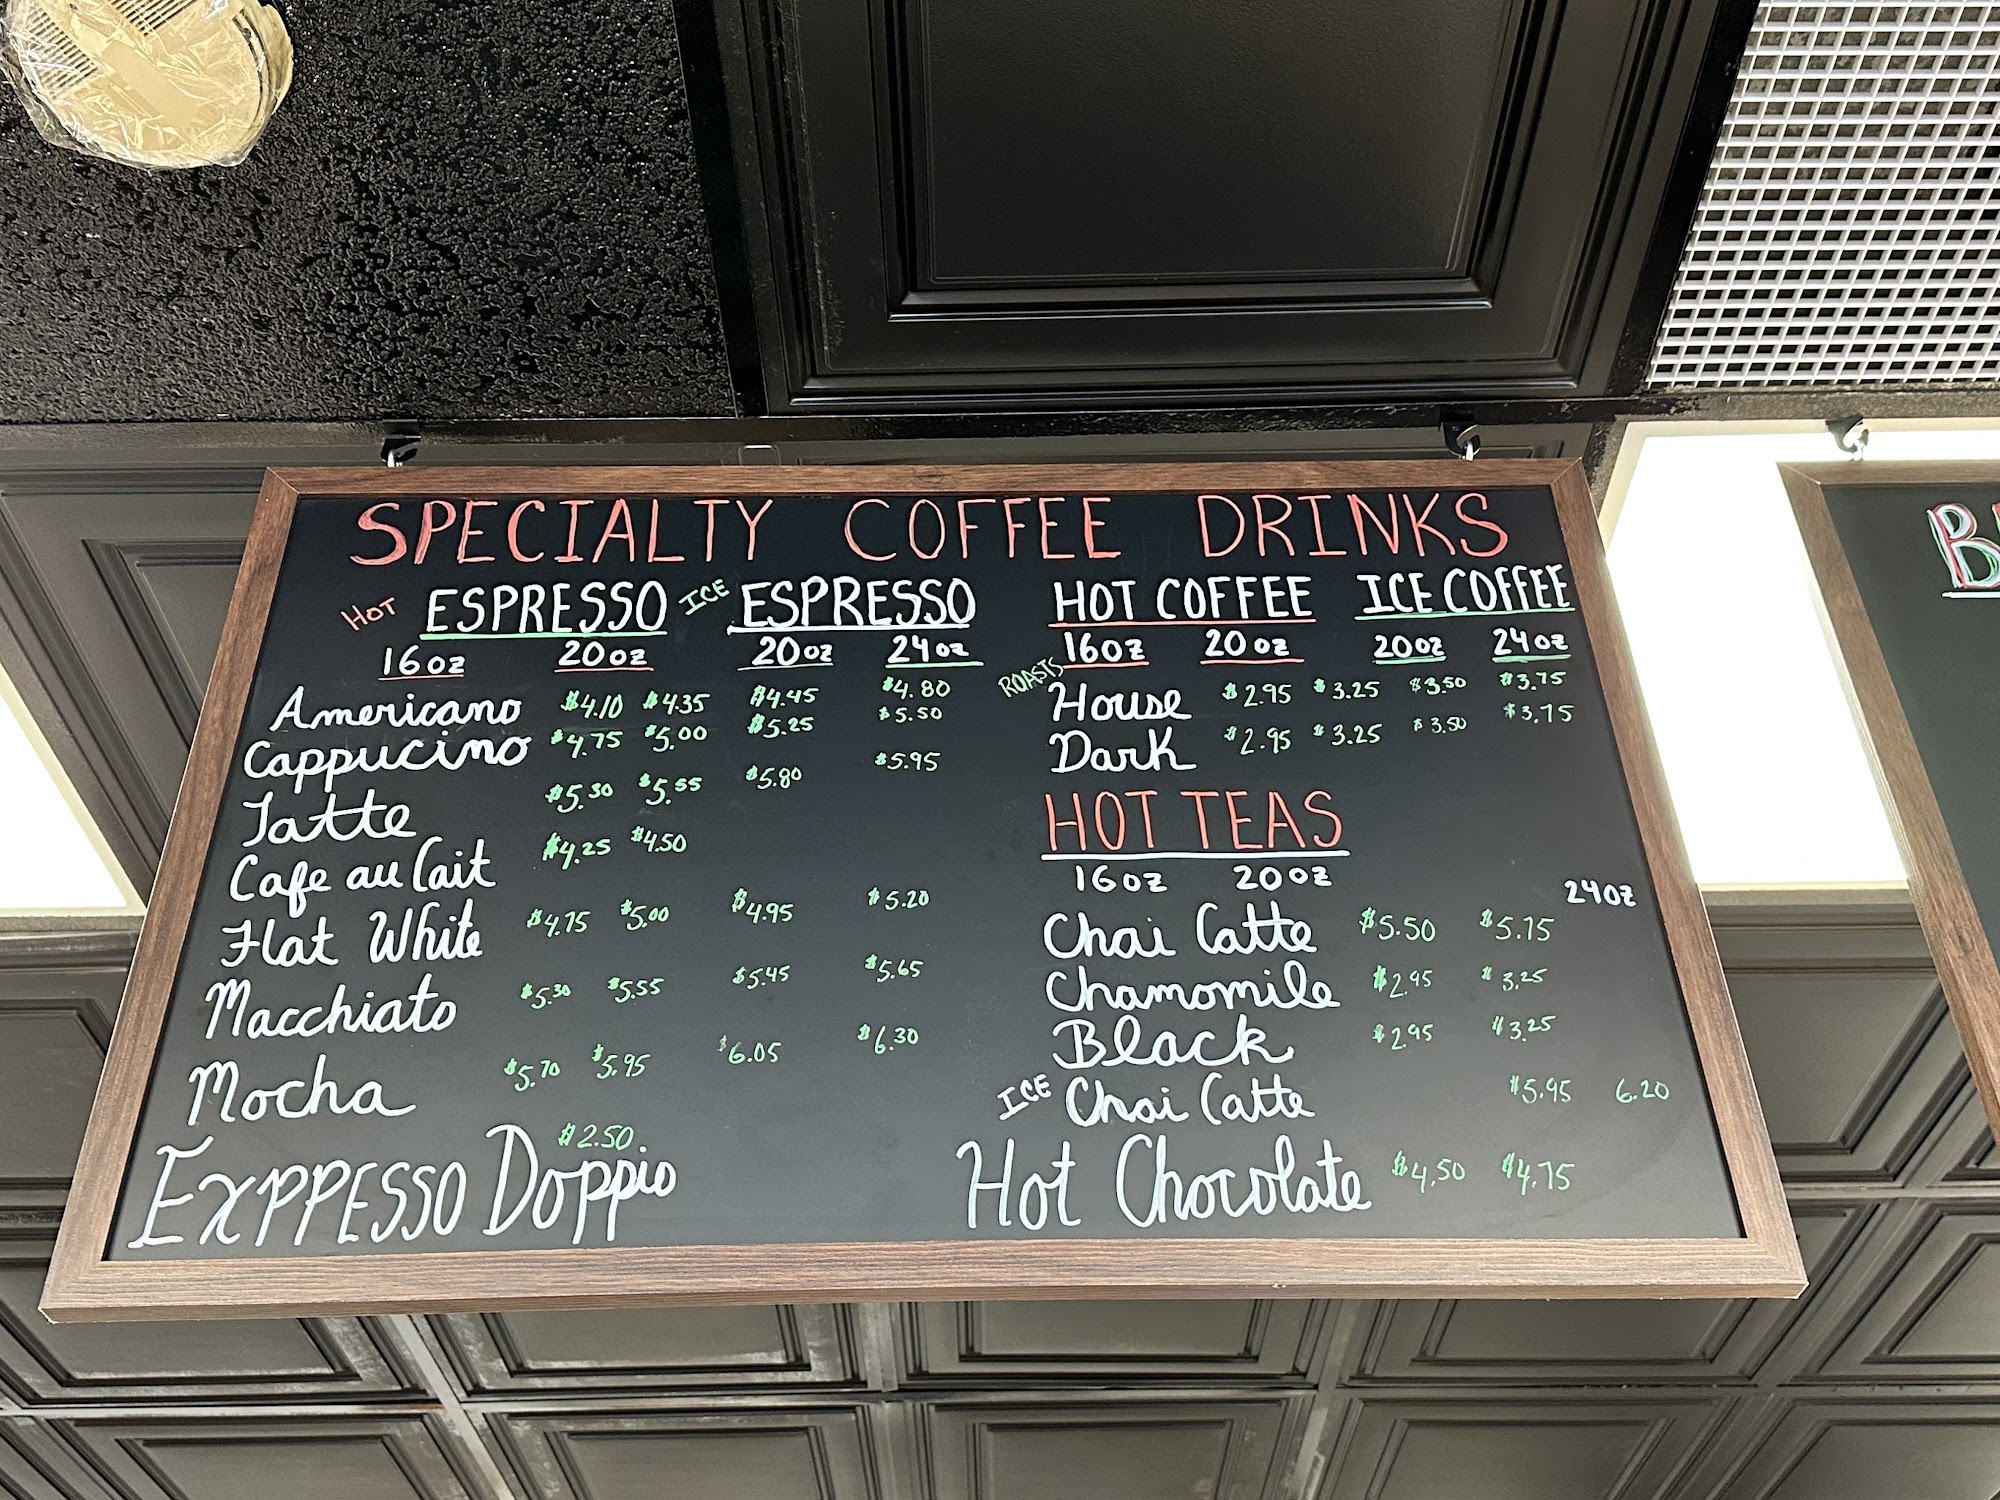 SPECIALTY COFFEE DRINKS
HOT ESPRESSO ICE ESPRESSO
16oz 20oz 20oz 24oz
Americano $4.10 $4.35 $4.45 $4.80
Cappuccino $4.75 $5.00 $5.25 $5.50
Latte $5.30 $5.55 $5.80 $5.95
Cafe au Lait $4.25 $4.50
Flat White $4.75 $5.00 $4.95 $5.20
Macchiato $5.30 $5.55 $5.45 $5.65
Mocha $5.70 $5.95 $6.05 $6.30
$2.50
EXPPESSO Doppio
HOT COFFEE ICE COFFEE
16oz 20oz 20oz 24oz
ROASTS
House $2.95 $3.25 $3.50 $3.75
Dark $2.95 $3.25 $3.50 $3.75
HOT TEAS
16oz 20oz 24oz
Chai Latte $5.50 $5.75
Chamomile $2.95 $3.25
Black $2.95 $3.25
ICE Chai Latte $5.95 6.20
Hot Chocolate $4.50 $4.75